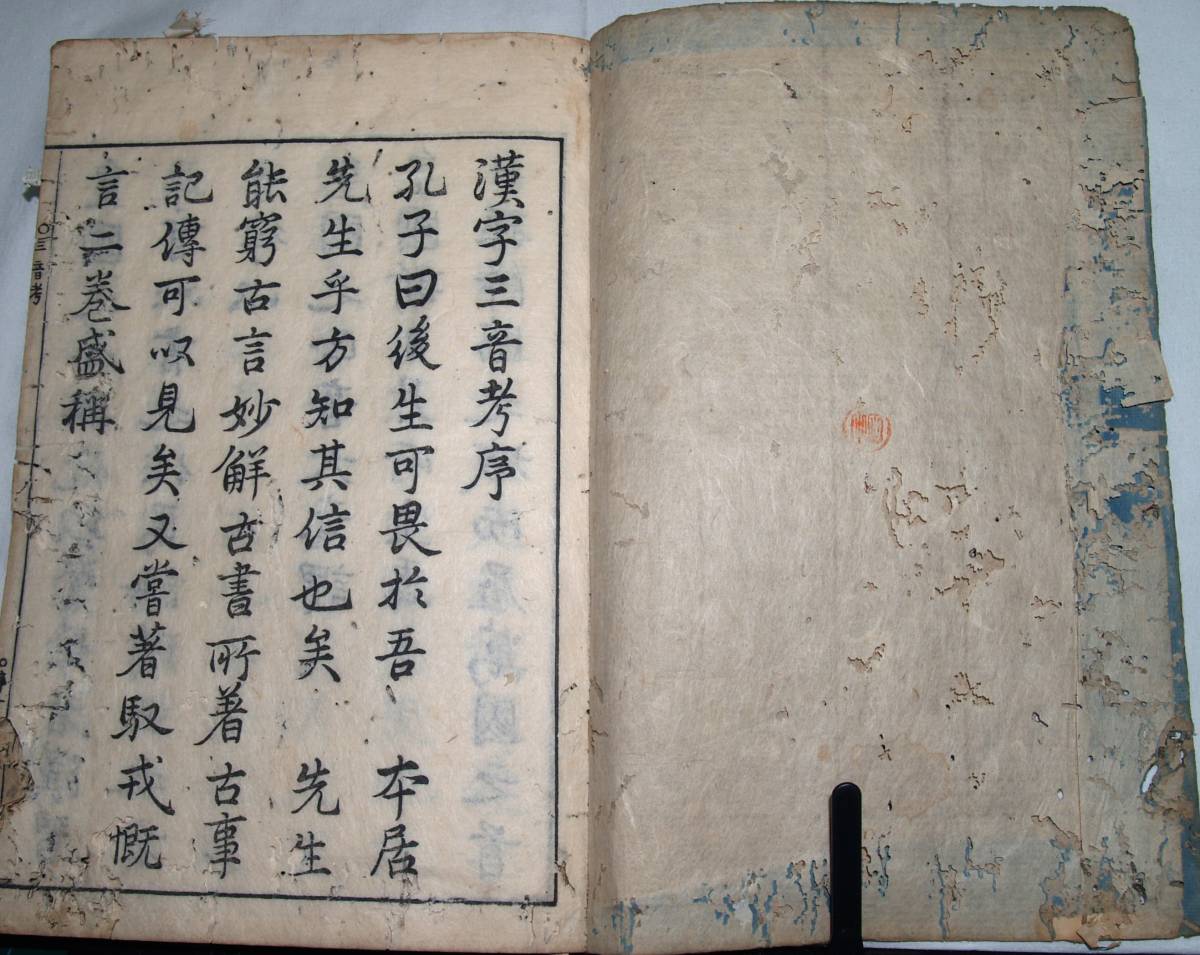 漢字三音考序
孔子曰後生可畏於吾　本居
先生乎方知其信也矣　先生
能窮古言妙解古書所著古事
記傳可㕥見矣又嘗著馭戎慨
言二卷盛稱
三音考